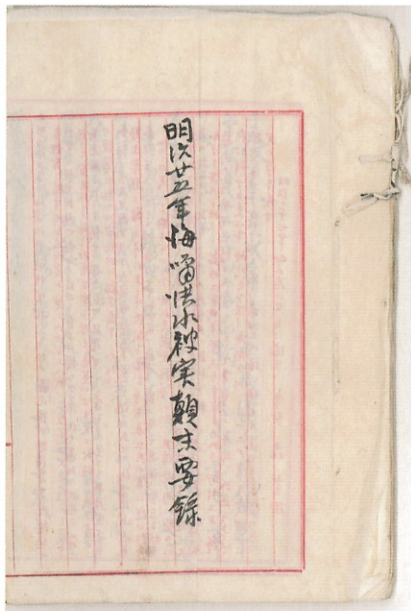 明治廿五年海嘯洪水被害顛末要録